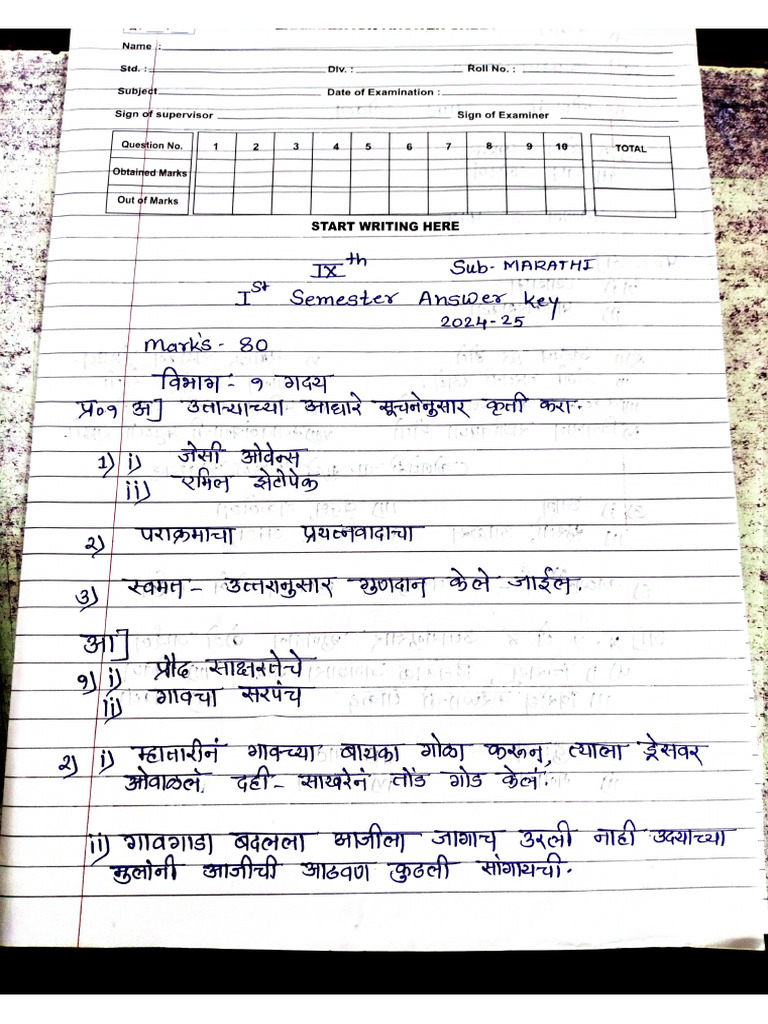 Name :
Std. : Div. : Roll No. :
Subject Date of Examination :
Sign of supervisor Sign of Examiner
Question No. 1 2 3 4 5 6 7 8 9 10 TOTAL
Obtained Marks
Out of Marks
START WRITING HERE
IXth Sub- MARATHI
Ist Semester Answer key
2024-25
Mark's - 80
विभाग:- १ गद्य
प्र०१ अ] उताऱ्याच्या आधारे सूचनेनुसार कृती करा.
1) i) जेसी ओवेन्स
ii) एमिल झेटोपेक
२) पराक्रमाचा प्रयत्नवादाचा
३) स्वमत - उत्तरानुसार गुणदान केले जाईल.
आ]
१) i) प्रौढ साक्षरतेचे
ii) गावचा सरपंच
२) i) म्हातारीनं गावच्या बायका गोळा करून, त्याला ड्रेसवर
ओवाळलं. दही - साखरेनं तोंड गोड केलं.
ii) गावगाडा बदलला आजीला जागाच उरली नाही उदयाच्या
मुलांनी आजीची आठवण कुठली सांगायची.